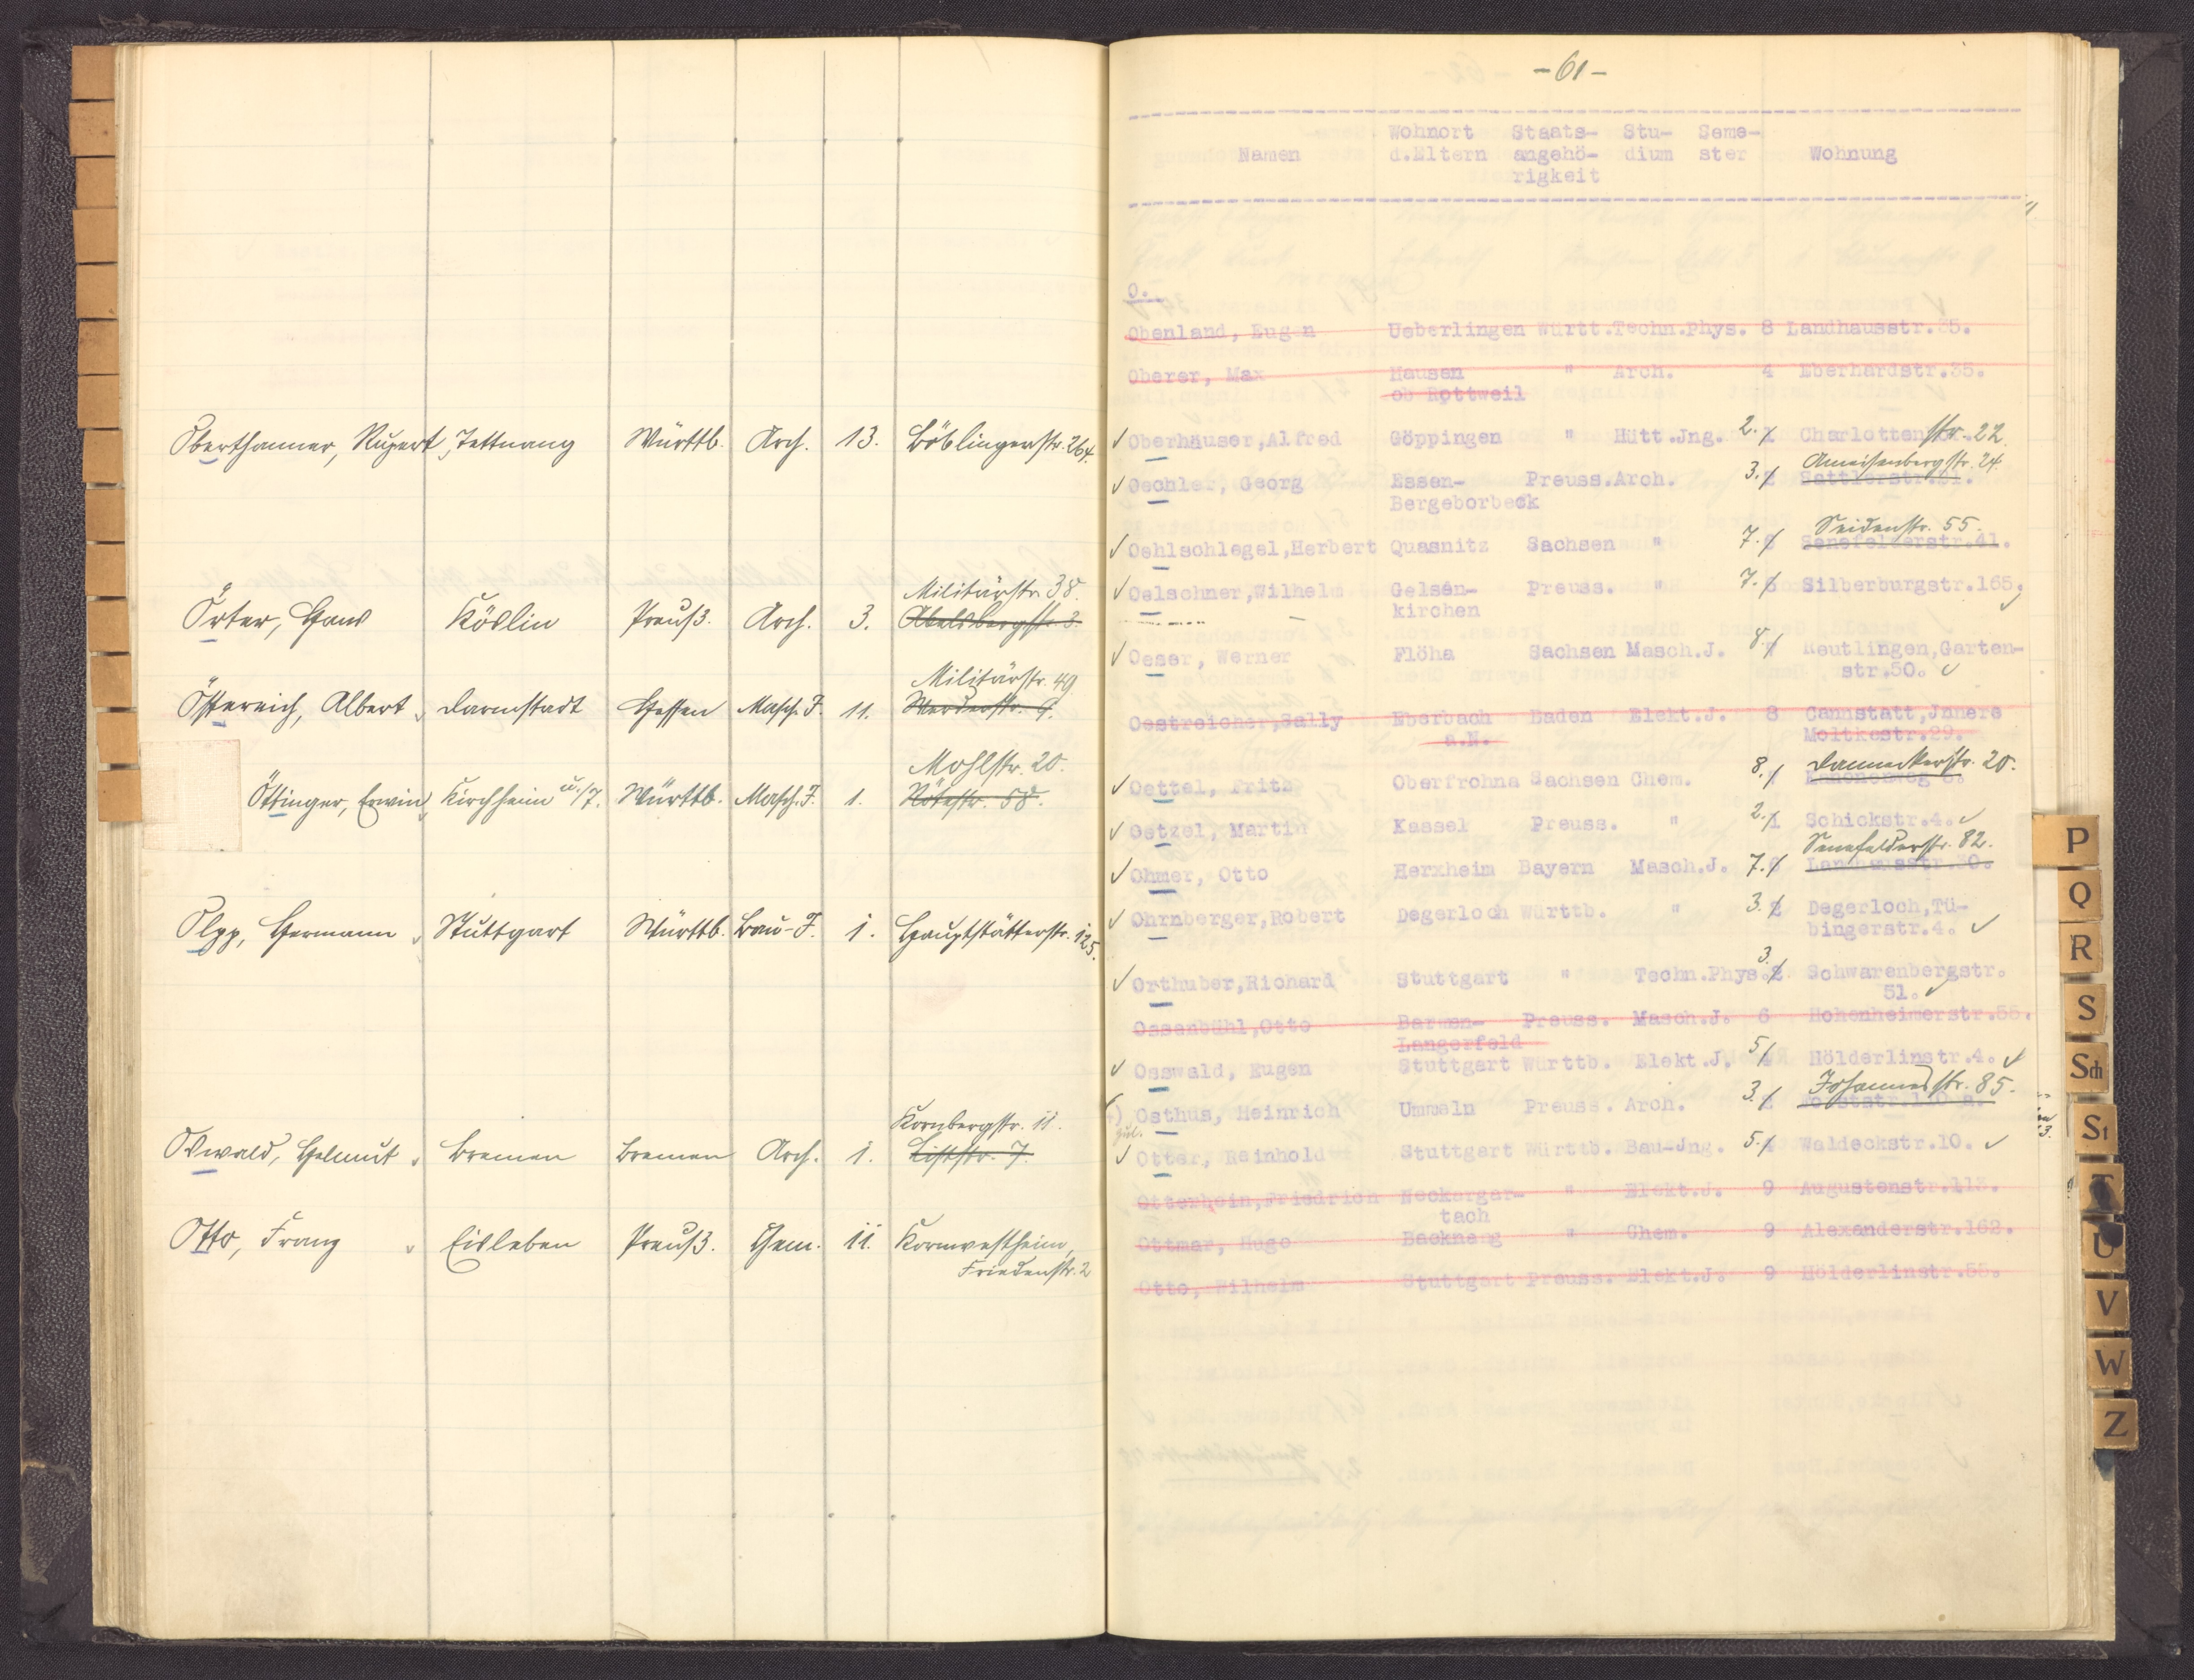 Oberthanner, Rupert, Tettnang Württb. Arch. 13. Böblingerstr. 264.
Militärstr. 38.
Örter, Hans Köslin Preuß. Arch. 3. Abelsbergstr. 3.
Militärstr. 49.
Östereich, Albert Darmstadt Hessen Masch. I. 11. Werderstr. 9.
Mohlstr. 20.
Öttinger, Erwin, Kirchheim u/T. Württb. Masch. I. 1. Rötestr. 58.
Olpp, Hermann Stuttgart Württb. Bau-I. 1. Hauptstätterstr. 125.
Kornbergstr. 11.
Oswald, Helmut Bremen Bremen Arch. 1. Liststr. 7.
Otto, Franz Eisleben Preuß. Chem. 11. Kornwestheim,
Friedenstr. 2
-61-
Wohnort Staats- Stu- Seme-
Namen d.Eltern angehö- dium ster Wohnung
rigkeit
O.
Obenland, Eugen Ueberlingen Württ. Techn.Phys. 8 Landhausstr.35.
Oberer, Max Hausen " Arch. 4 Eberhardstr.35.
ob Rottweil
Oberhäuser,Alfred Göppingen " Hütt.Jng. 2. 1 Charlottenstr. 22.
Ameisenbergstr. 24.
Oechler, Georg Essen- Preuss.Arch. 3. 2 Sattlerstr.
Bergeborbeck
Seidenstr. 55.
Oehlschlegel,Herbert Quasnitz Sachsen " 7. 6 Senefelderstr.41.
Oelschner,Wilhelm Gelsen- Preuss. " 7. 6 Silberburgstr.165.
kirchen
Oeser, Werner Flöha Sachsen Masch.J. 8. Reutlingen,Garten-
str.50.
Oestreicher,Sally Eberbach Baden Elekt.J. 8 Cannstatt,Jnnere
a.N. Moltkestr.29.
Danneckerstr. 20.
Oettel, Fritz Oberfrohna Sachsen Chem. 8. Kanonenweg 6.
Oetzel, Martin Kassel Preuss. " 2. 1 Schickstr.4.
Senefelderstr. 82.
Ohmer, Otto Herxheim Bayern Masch.J. 7. 6 Landhausstr.30.
Ohrnberger,Robert Degerloch Württb. " 3. 2 Degerloch,Tü-
bingerstr.4.
Orthuber,Richard Stuttgart " Techn.Phys. 3. 2 Schwarenbergstr.
51.
Ossenbühl,Otto Barmen- Preuss. Masch.J. 6 Hohenheimerstr.55.
Langerfeld
Osswald, Eugen Stuttgart Württb. Elekt.J. 5 4 Hölderlinstr.4.
Johannesstr. 85.
Osthus, Heinrich Ummeln Preuss. Arch. 3. 2 Forststr.
Otter, Reinhold Stuttgart Württb. Bau-Jng. 5. 4 Waldeckstr.10.
Otterbein,Friedrich Neckargar- " Elekt.J. 9 Augustenstr.113.
tach
Ottmar, Hugo Backnang " Chem. 9 Alexanderstr.162.
Otto, Wilhelm Stuttgart Preuss. Elekt.J. 9 Hölderlinstr.55.
P
Q
R
S
Sch
St
T
U
V
W
Z